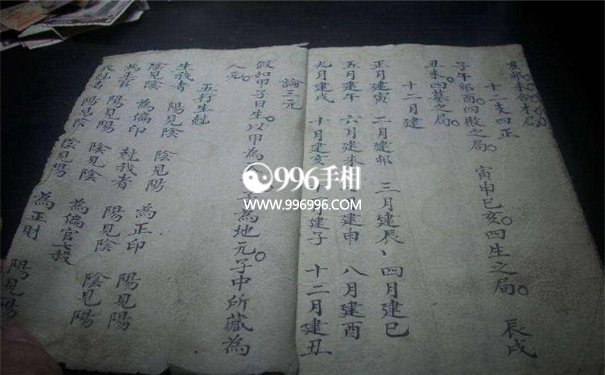 亥卯未合木局
十二支四正
子午卯酉。四敗之局。寅申巳亥。四生之局。辰戌
丑未。四墓之局。
十二月建
正月建寅 二月建卯 三月建辰、四月建巳
五月建午 六月建未 七月建申 八月建酉
九月建戌 十月建亥 十一月建子 十二月建丑
論三元
假如甲子日生。以甲為天元。子為地元。子中所藏為
人元。
生我者 陽見陰 陰見陽 為正印 陽見陽
陰見陰 為偏印 尅我者 陽見陰 陰見陽
為正官 陽見陽 陰見陰 為偏官七殺
陽見陰 陰見陽 為正財 陽見陽
996手相
www.996996.com